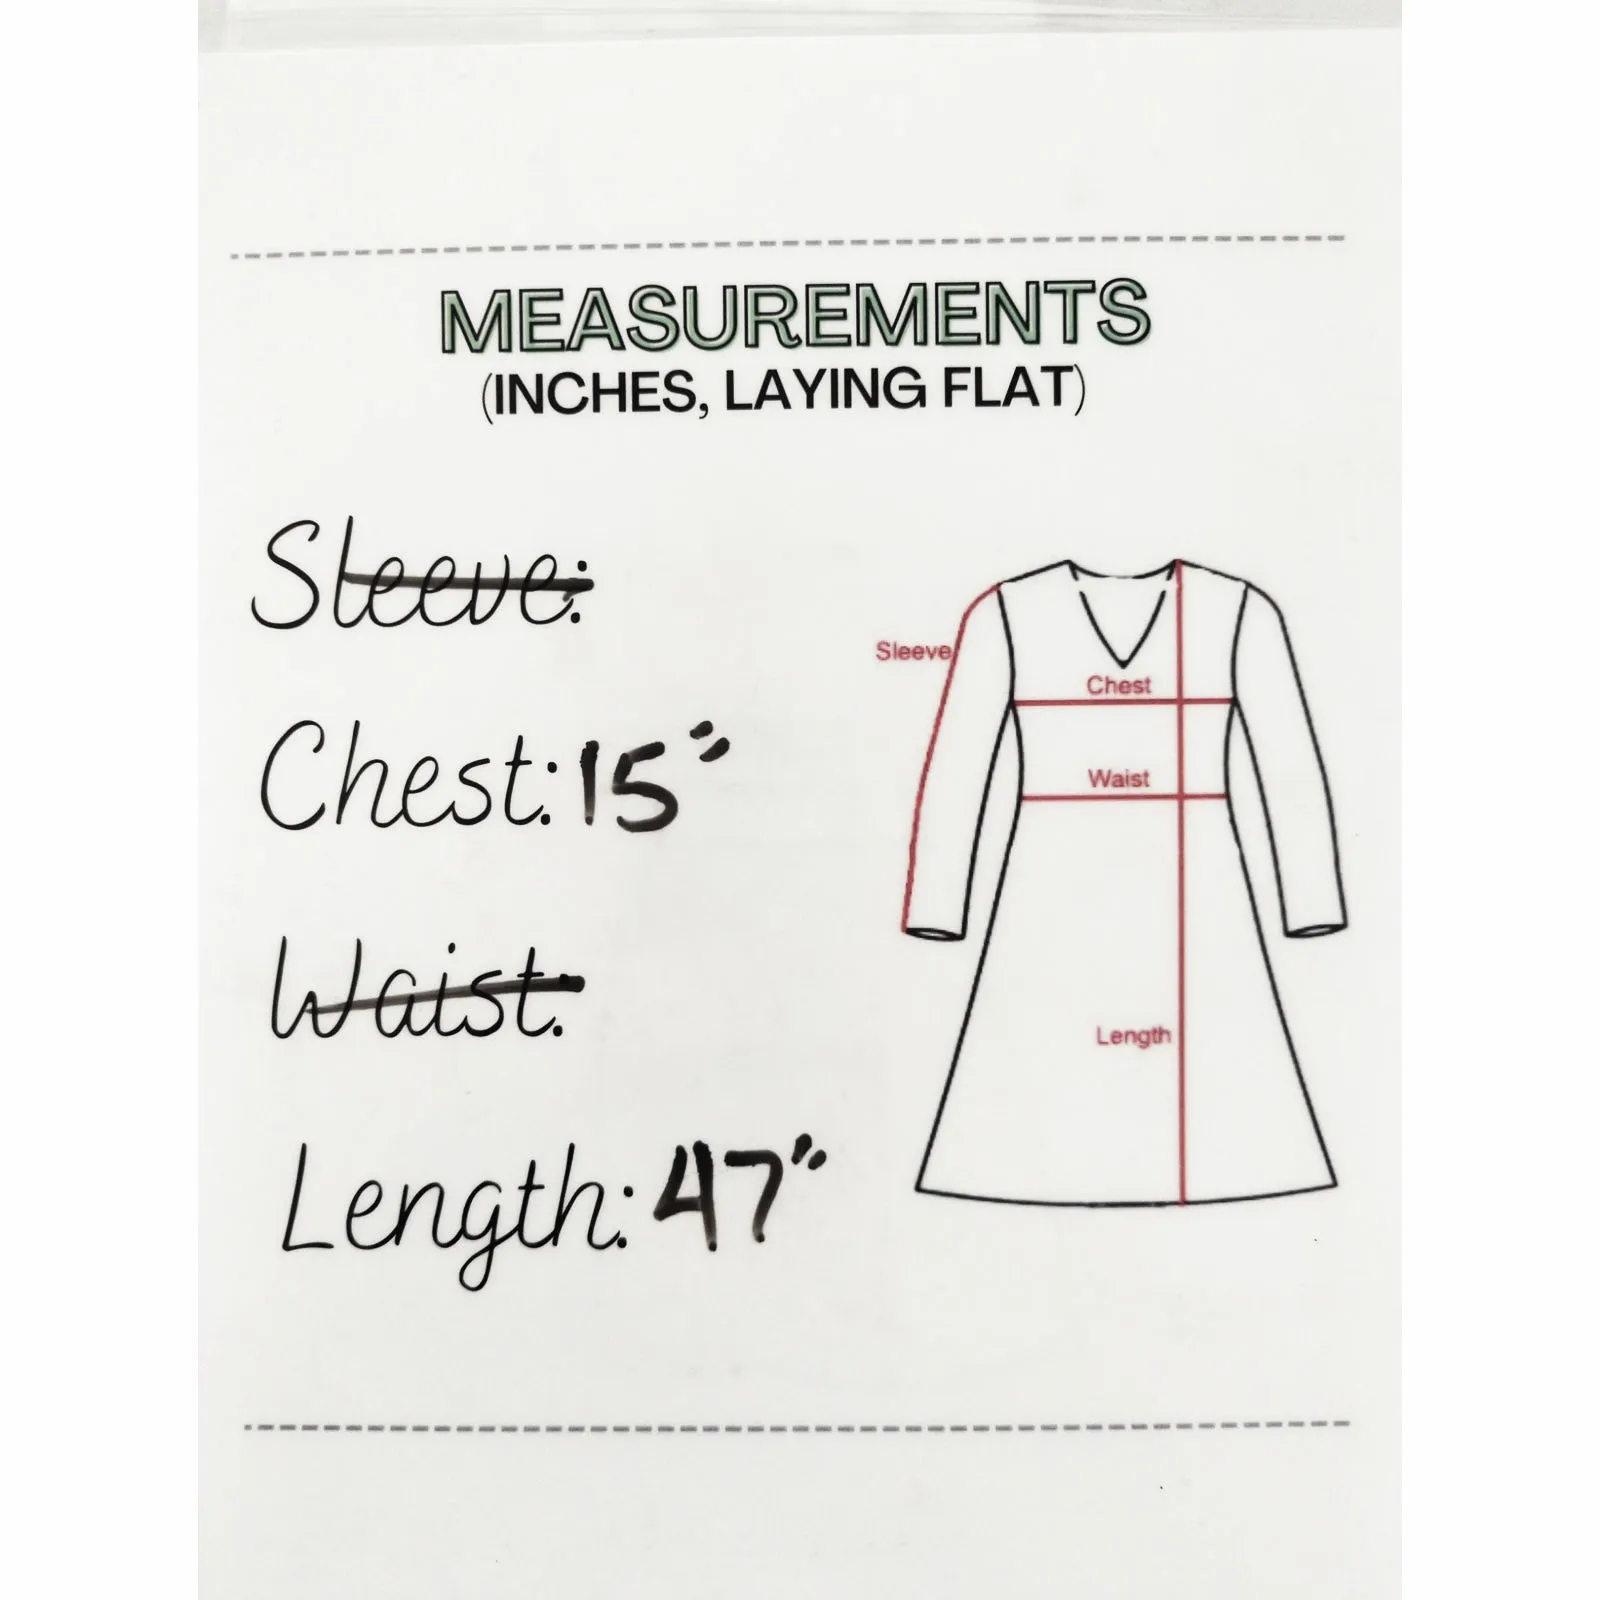 MEASUREMENTS
(INCHES, LAYING FLAT)
Sleeve:
Chest: 15"
Waist:
Length: 47"
Sleeve
Chest
Waist
Length